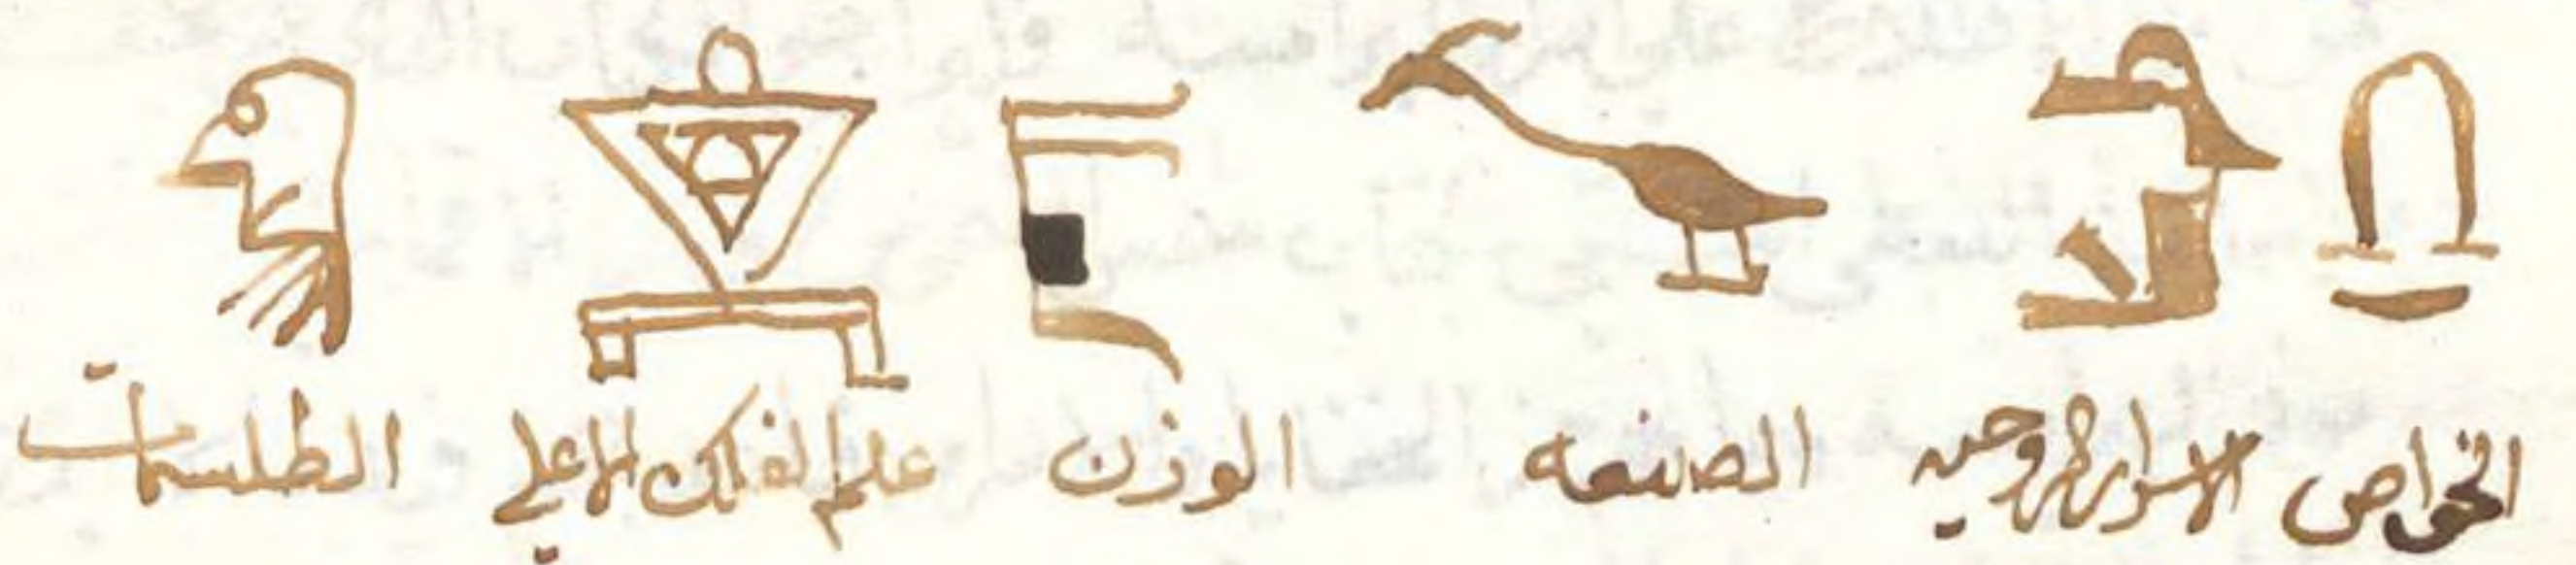 الخواص الاسرار الروحيه الصنعه الوزن علم الفلك الاعلي الطلسمات